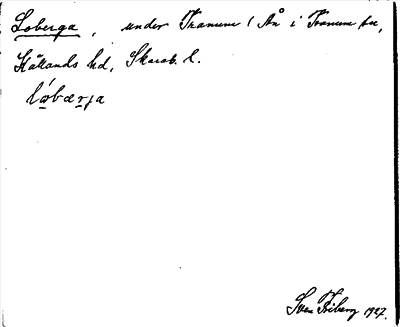 Loberga, under Tranum (Ån i Tranum sn,
Kållands hd, Skarab. l.
lo̱bæṟja
Sven Friberg 1927.